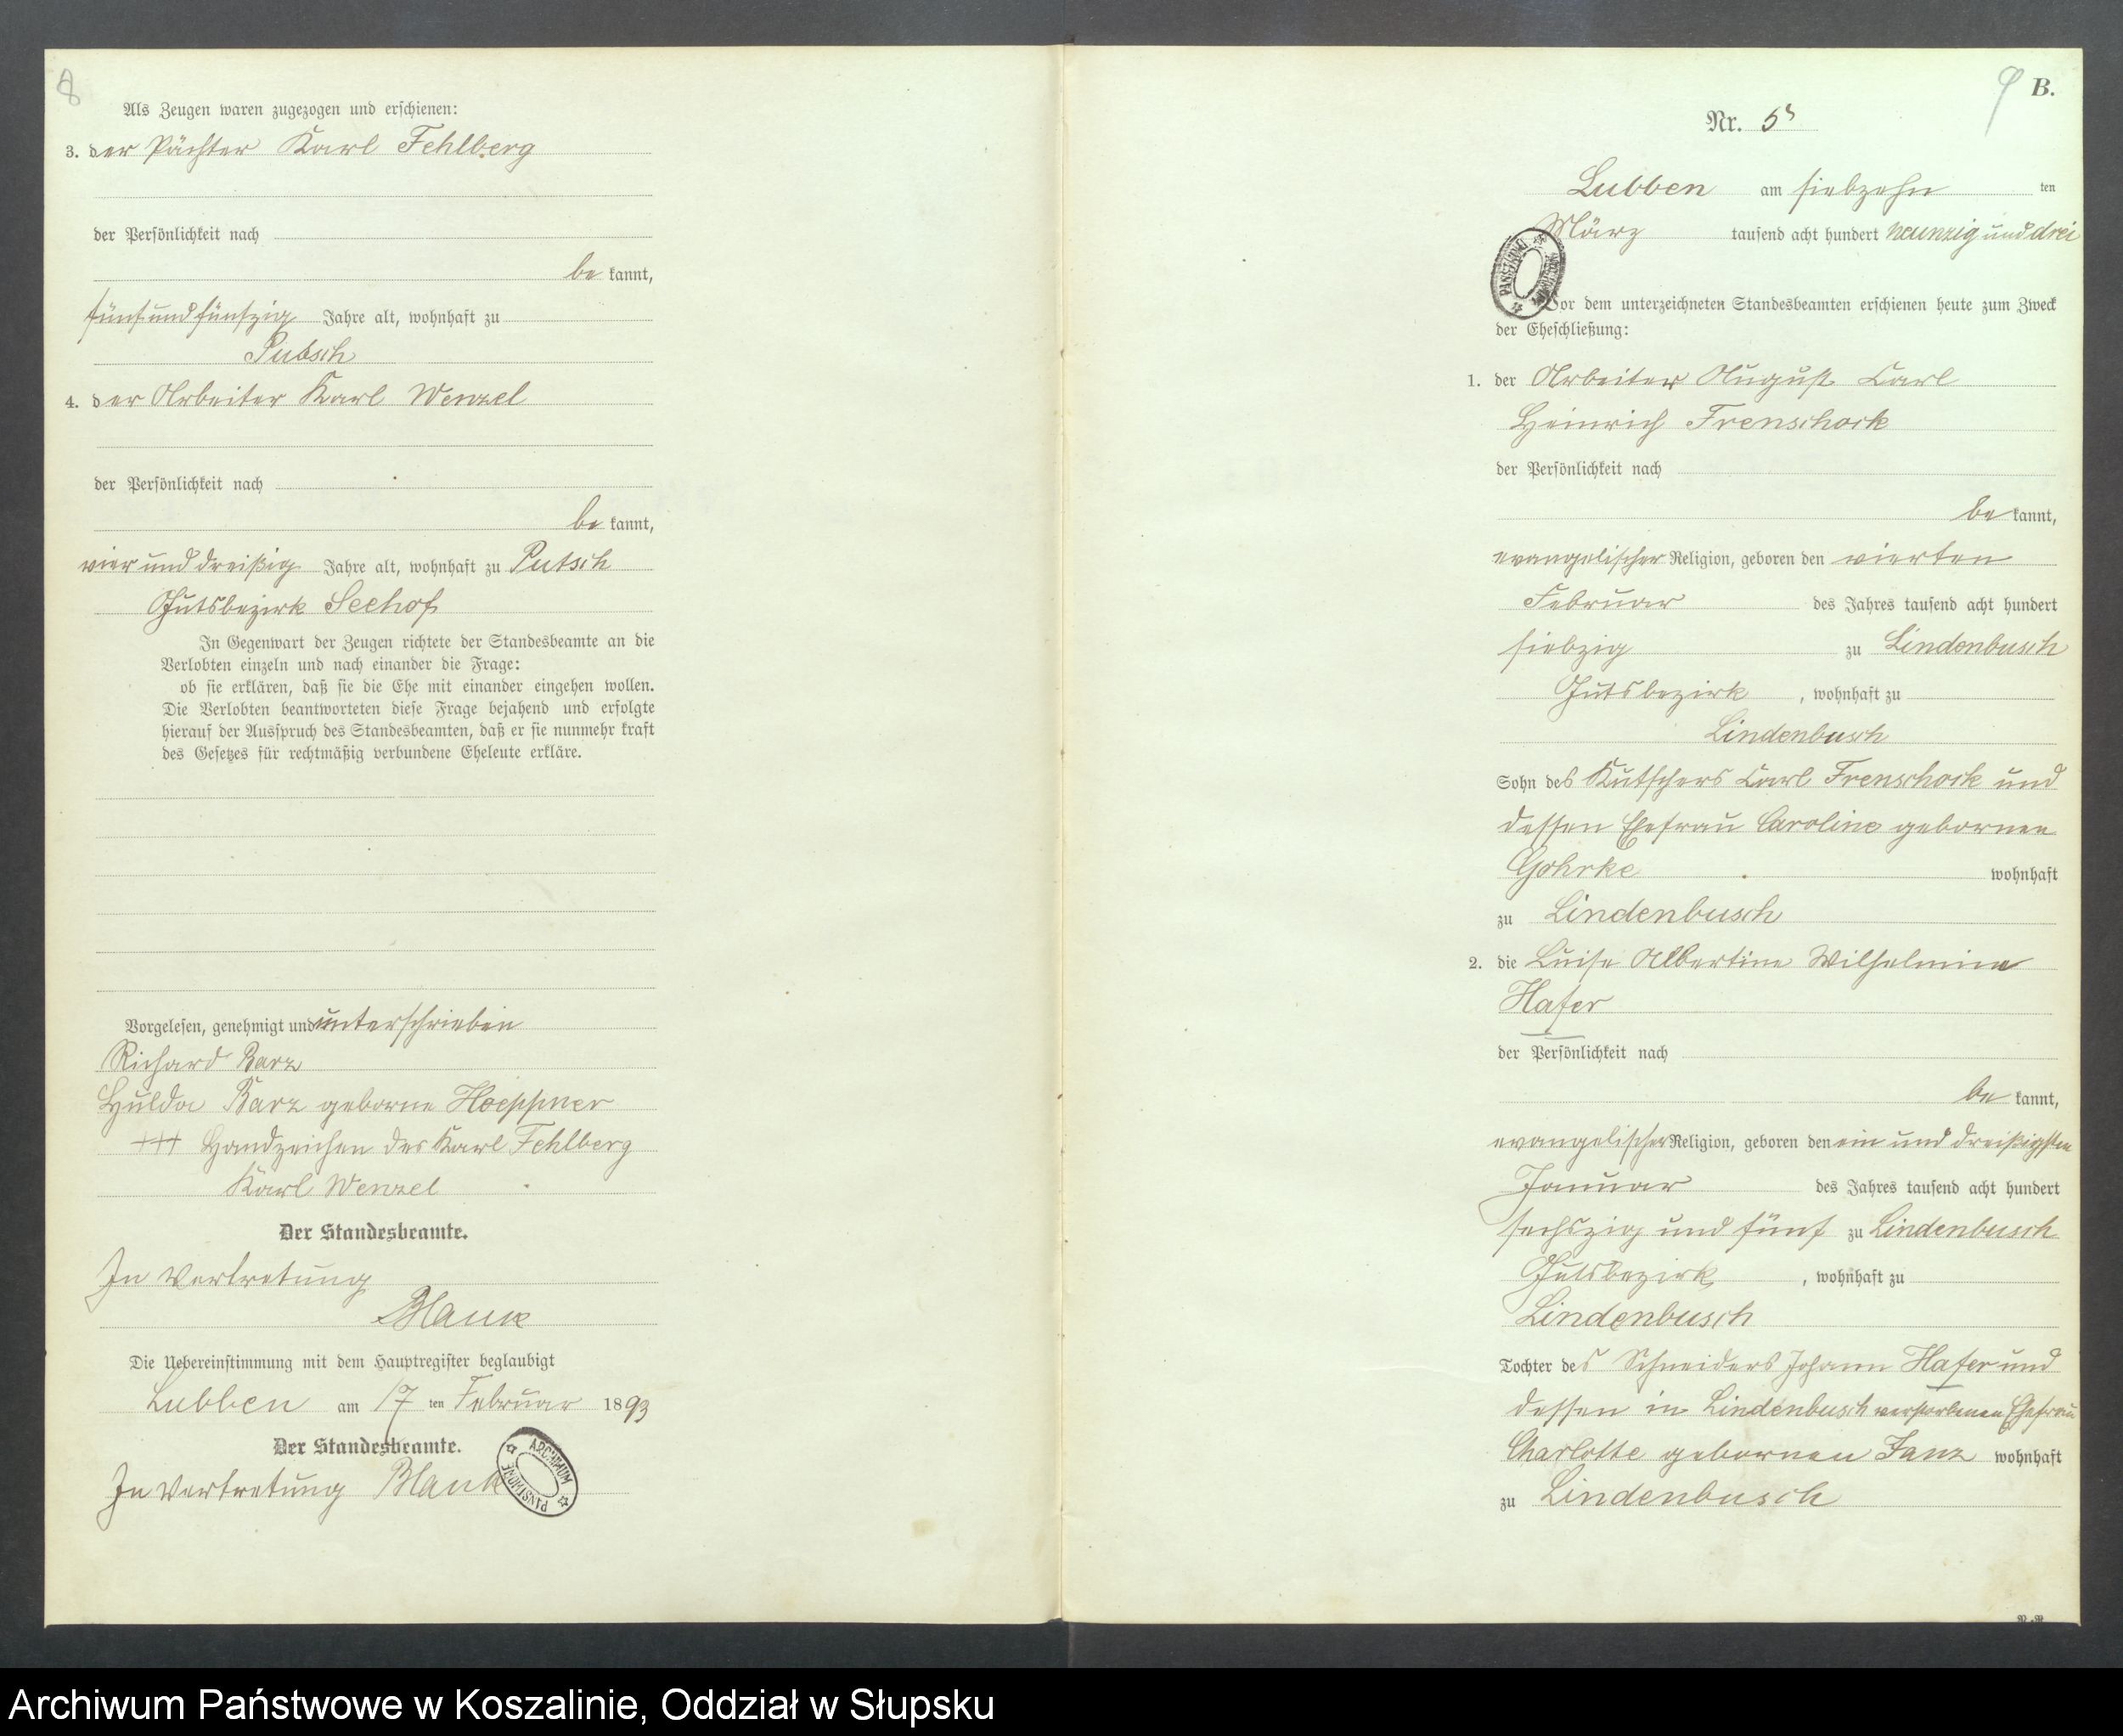 8
Als Zeugen waren zugezogen und erschienen:
3. der Pächter Karl Fehlberg
der Persönlichkeit nach
be kannt,
fünf und fünfzig Jahre alt, wohnhaft zu
Putsch
4. der Arbeiter Karl Wenzel
der Persönlichkeit nach
be kannt,
vier und dreißig Jahre alt, wohnhaft zu Putsch
Gutsbezirk Seehof
In Gegenwart der Zeugen richtete der Standesbeamte an die
Verlobten einzeln und nach einander die Frage:
ob sie erklären, daß sie die Ehe mit einander eingehen wollen.
Die Verlobten beantworteten diese Frage bejahend und erfolgte
hierauf der Ausspruch des Standesbeamten, daß er sie nunmehr kraft
des Gesetzes für rechtmäßig verbundene Eheleute erkläre.
Vorgelesen, genehmigt und unterschrieben
Richard Barz
Hulda Barz geborne Hoeppner
+++ Handzeichen des Karl Fehlberg
Karl Wenzel
Der Standesbeamte.
In Vertretung
Blank
Die Uebereinstimmung mit dem Hauptregister beglaubigt
Lubben am 17 ten Februar 1893
Der Standesbeamte.
In Vertretung Blank
ARCHIWUM PAŃSTWOWE
9 B.
Nr. 5
Lubben am siebzehn ten
März tausend acht hundert neunzig und drei
Vor dem unterzeichneten Standesbeamten erschienen heute zum Zweck
der Eheschließung:
1. der Arbeiter August Carl
Heinrich Frenschock
der Persönlichkeit nach
be kannt,
evangelischer Religion, geboren den vierten
Februar des Jahres tausend acht hundert
siebzig zu Lindenbusch
Gutsbezirk , wohnhaft zu
Lindenbusch
Sohn des Kutschers Carl Frenschock und
dessen Ehefrau Caroline gebornen
Gohrke wohnhaft
zu Lindenbusch
2. die Luise Albertine Wilhelmine
Hafer
der Persönlichkeit nach
be kannt,
evangelischer Religion, geboren den ein und dreißigsten
Januar des Jahres tausend acht hundert
sechszig und fünf zu Lindenbusch
Gutsbezirk , wohnhaft zu
Lindenbusch
Tochter des Schneiders Johann Hafer und
dessen in Lindenbusch verstorbenen Ehefrau
Charlotte gebornen Janz wohnhaft
zu Lindenbusch
Archiwum Państwowe w Koszalinie, Oddział w Słupsku